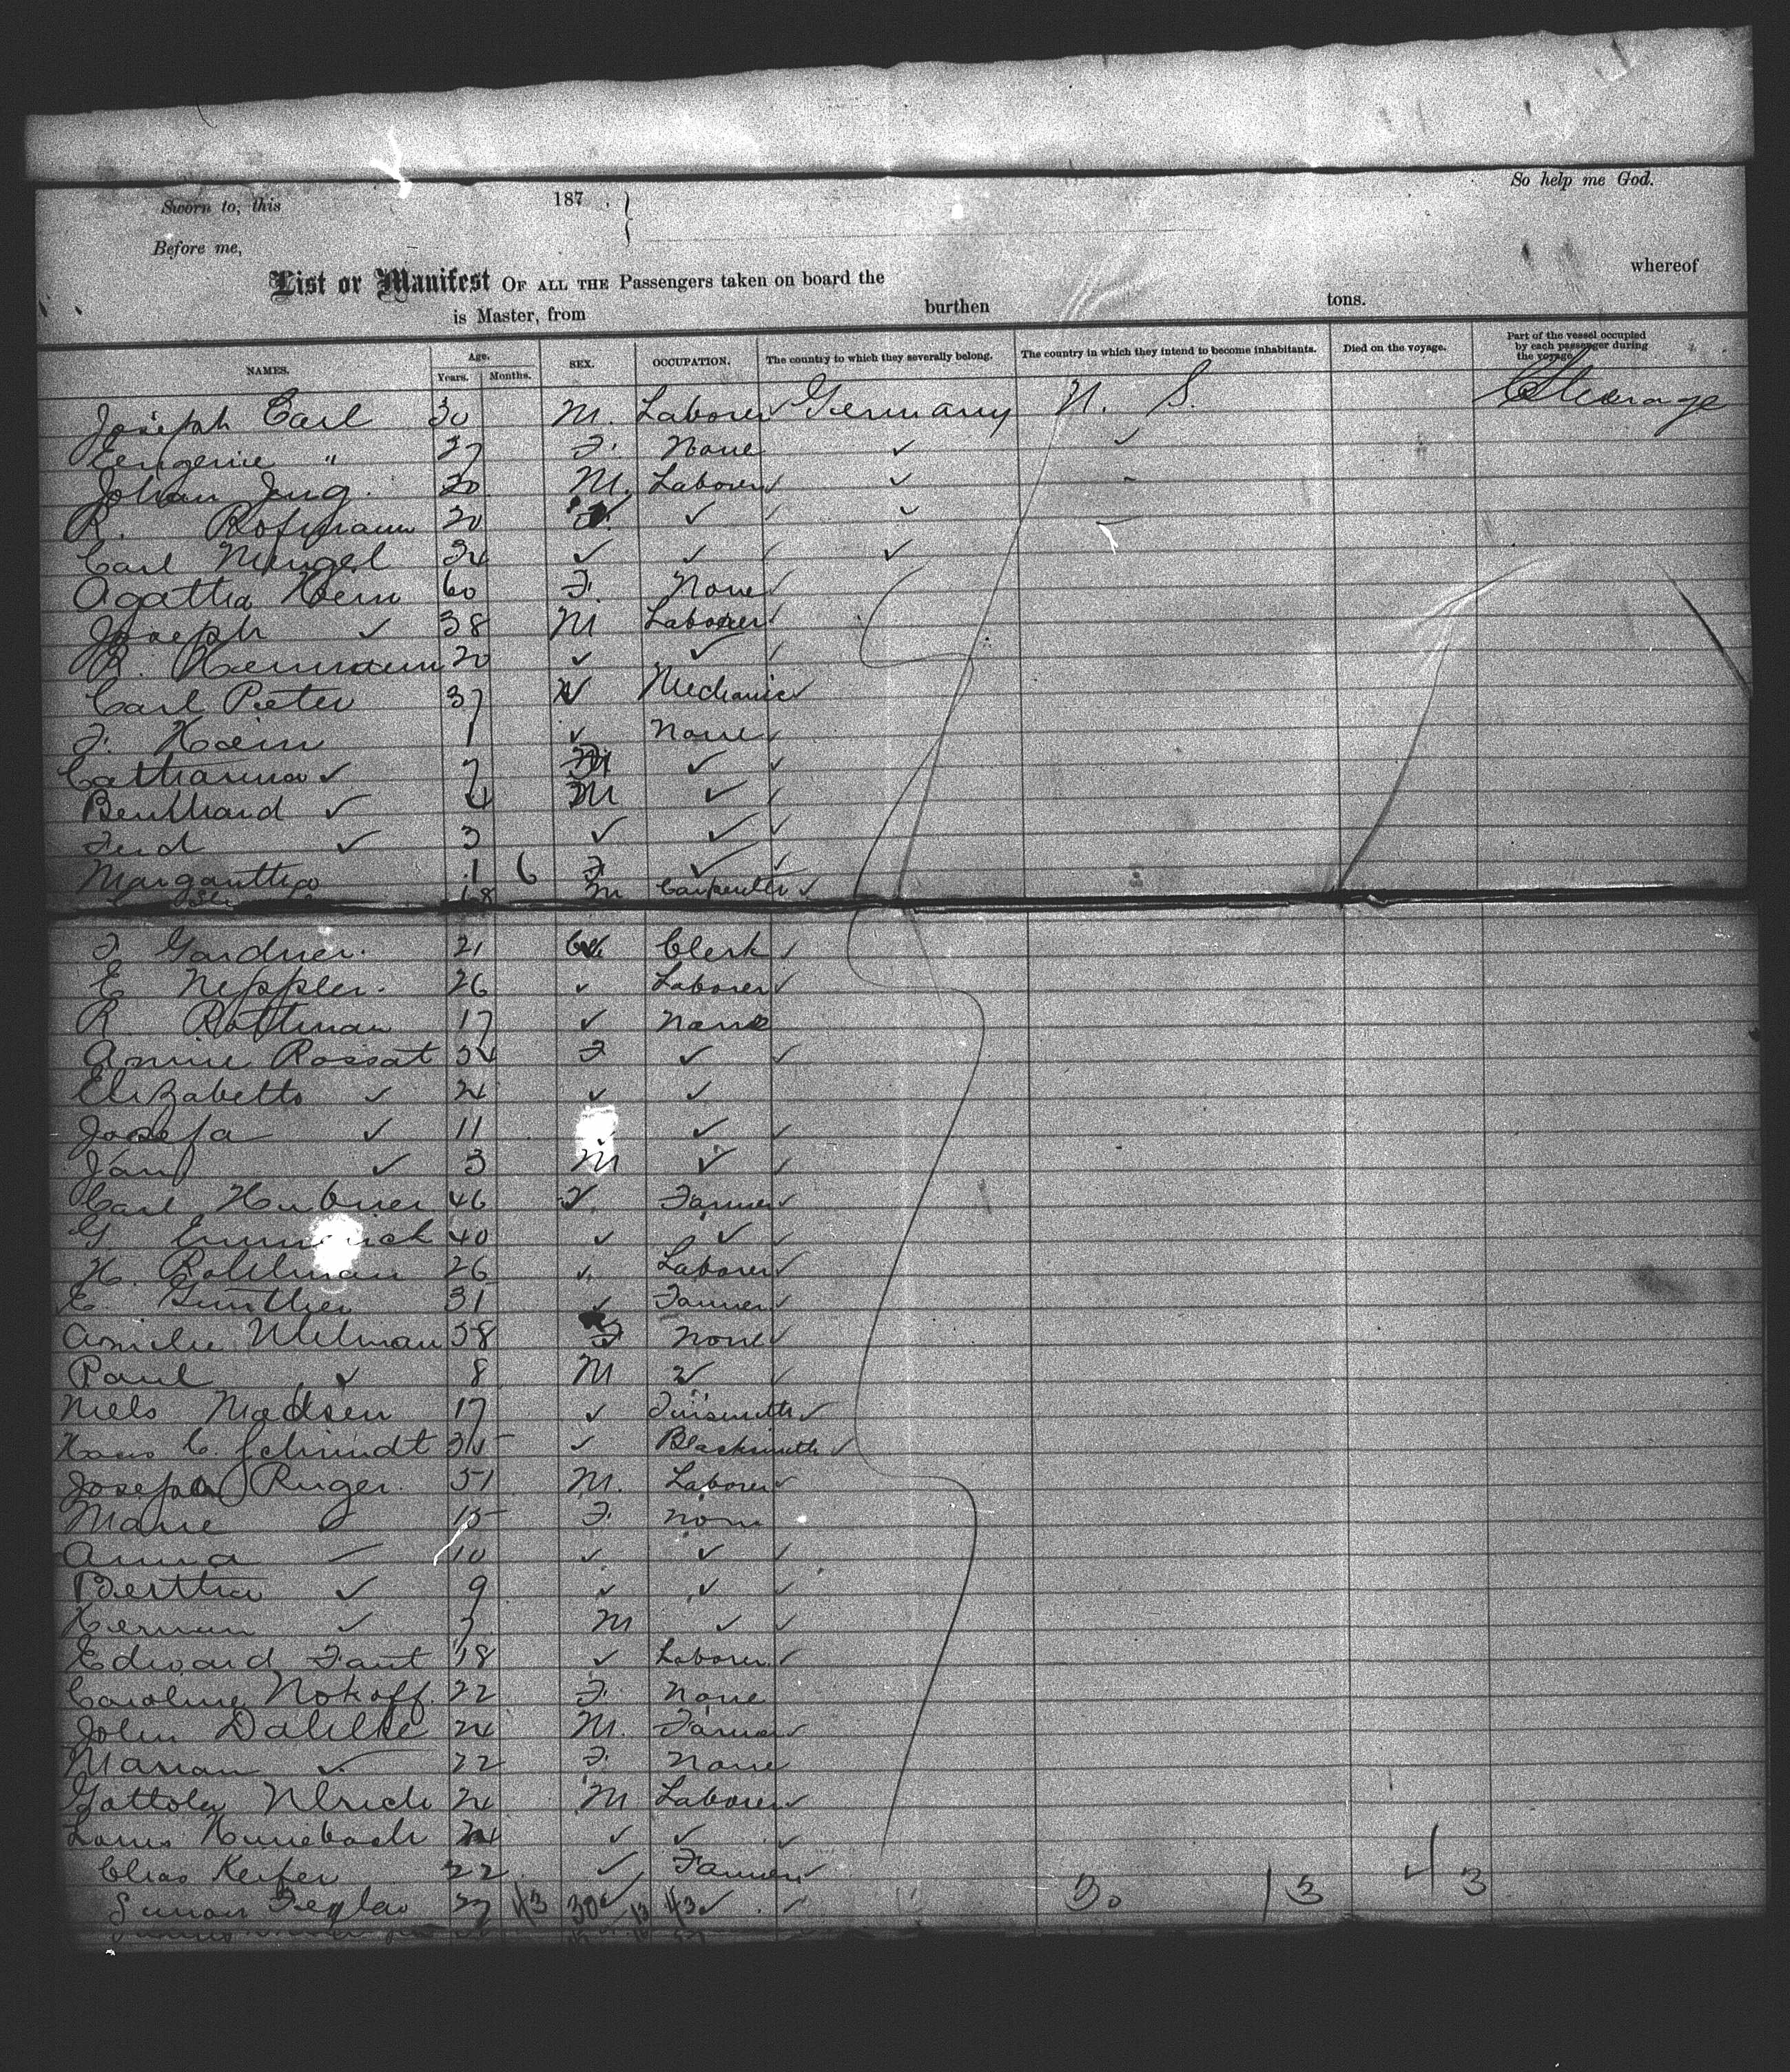 So help me God.
Sworn to, this 187 .
Before me,
List or Manifest OF ALL THE Passengers taken on board the whereof
is Master, from burthen tons.
NAMES. Age. Years. Months. SEX. OCCUPATION. The country to which they severally belong. The country in which they intend to become inhabitants. Died on the voyage. Part of the vessel occupied by each passenger during the voyage.
Joseph Earl 30 M. Laborer ✓ Germany U. S. Steerage
Eengenie " 27 F. None ✓ ✓
Johan Jung. 20 M. Laborer ✓ ✓
R. 20 ✓ ✓ ✓
Carl Mengel 24 ✓ ✓ ✓ ✓
Agatha 60 F. None ✓
Joseph ✓ 38 M Laborer ✓
20 ✓ ✓ ✓
Carl Pieter 37 Mechanic ✓
F. Hein 1 ✓ None ✓
Catharina ✓ 7 ✓ ✓
Bernhard ✓ 4 M ✓ ✓
Ferd ✓ 3 ✓ ✓ ✓
Margantha 1 6 F ✓ ✓
18 M Carpenter ✓
F. Gardner. 21 Clerk ✓
E Neppler. 26 ✓ Laborer ✓
R. Rottman 17 ✓ None
Annie Rossat 34 F ✓ ✓
Elizabetta ✓ 24 ✓ ✓
Josefa ✓ 11 ✓ ✓
Jan ✓ 3 M ✓ ✓
Carl Hubner 46 Farmer ✓
G 40 ✓ ✓ ✓
H. 26 ✓ Laborer ✓
E. Gunther 31 ✓ Farmer ✓
Amilie Ulman 38 F None ✓
Paul ✓ 8 M ✓ ✓
Niels Madsen 17 ✓ Tinsmith ✓
Hans C. Schmidt 35 ✓ Blacksmith ✓
Joseph Ruger. 51 M. Laborer ✓
Marie ✓ 15 F. None
Anna ✓ 10 ✓ ✓ ✓
Bertha ✓ 9 ✓ ✓ ✓
Herman ✓ M ✓ ✓
Edward Fant 18 ✓ Laborer ✓
Caroline Nokoff. 22 F. None
John Dahlke 24 M. Farmer ✓
Marian ✓ 22 F. None
Gottolb Ulrich 24 M Laborer ✓
Louis 24 ✓ ✓ ✓
Elias Keifer 22 ✓ Farmer ✓
27 43 30 13 43 ✓ 30 13 43